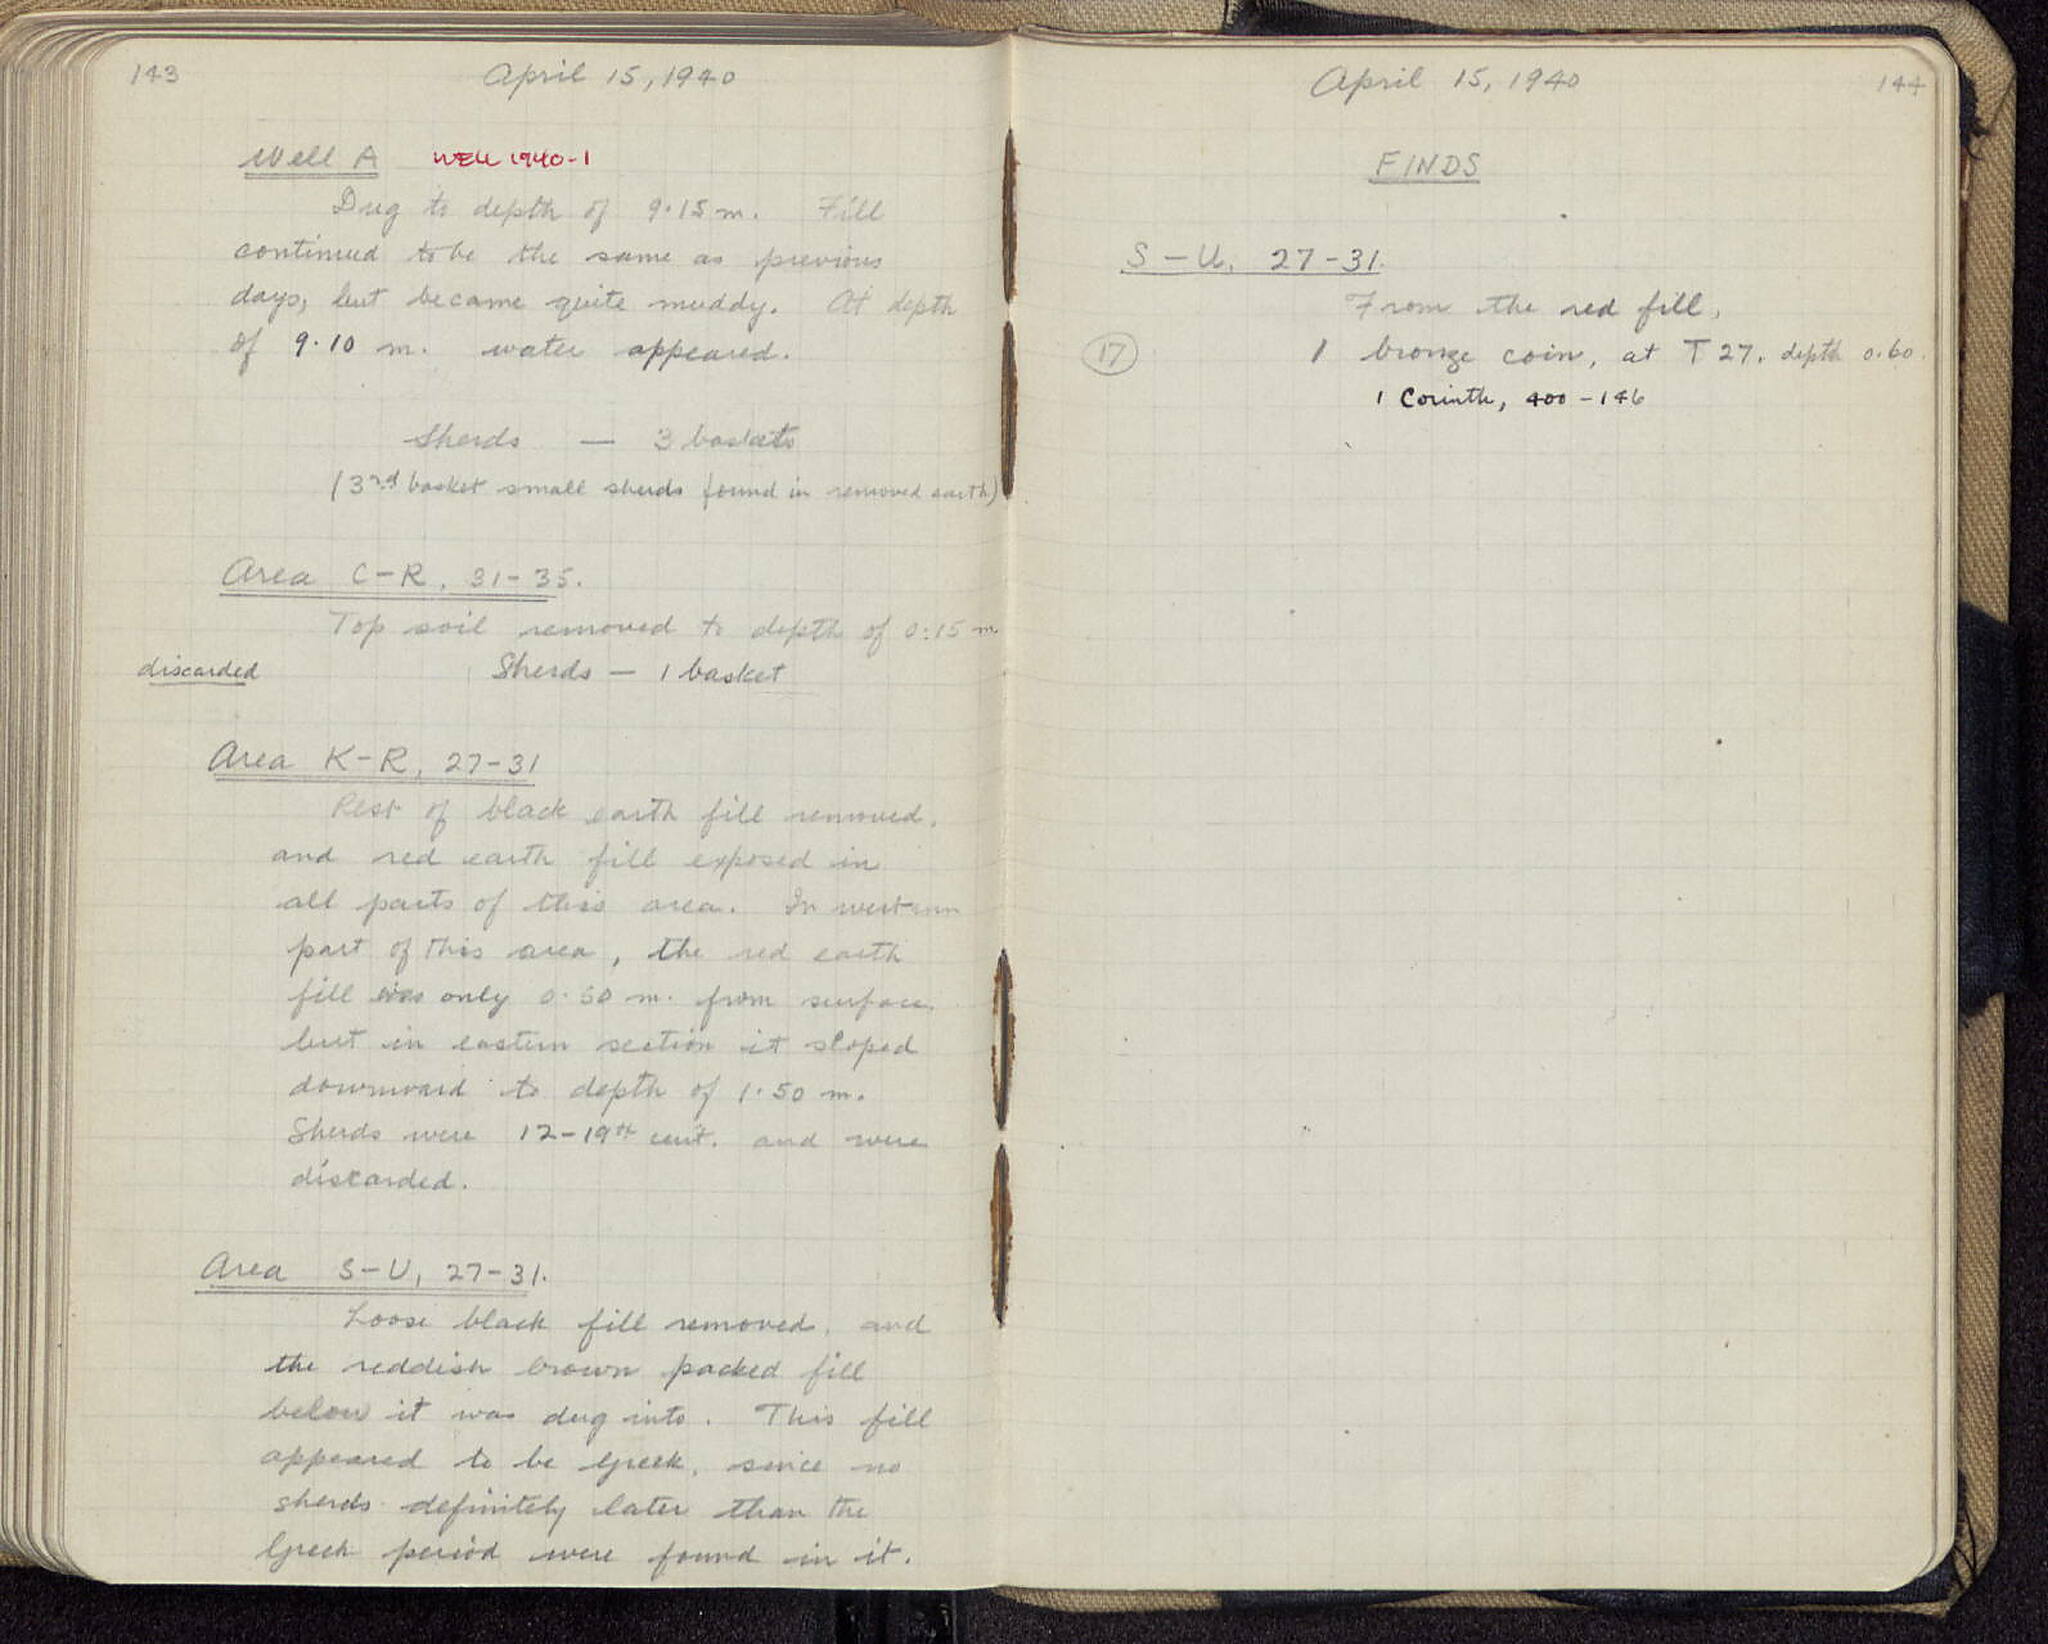 143
April 15, 1940
Well A WELL 1940-1
Dug to depth of 9.15 m. Fill
continued to be the same as previous
days, but became quite muddy. At depth
of 9.10 m. water appeared.
Sherds — 3 baskets
(3rd basket small sherds found in removed earth)
Area C-R, 31-35.
Top soil removed to depth of 0.15 m
discarded Sherds — 1 basket
Area K-R, 27-31
Rest of black earth fill removed,
and red earth fill exposed in
all parts of this area. In western
part of this area, the red earth
fill was only 0.50 m. from surface
but in eastern section it sloped
downward to depth of 1.50 m.
Sherds were 12-19th cent. and were
discarded.
Area S-U, 27-31.
Loose black fill removed, and
the reddish brown packed fill
below it was dug into. This fill
appeared to be Greek, since no
sherds definitely later than the
Greek period were found in it.
April 15, 1940
144
FINDS
S-U, 27-31.
From the red fill,
17 1 bronze coin, at T 27. depth 0.60.
1 Corinth, 400-146